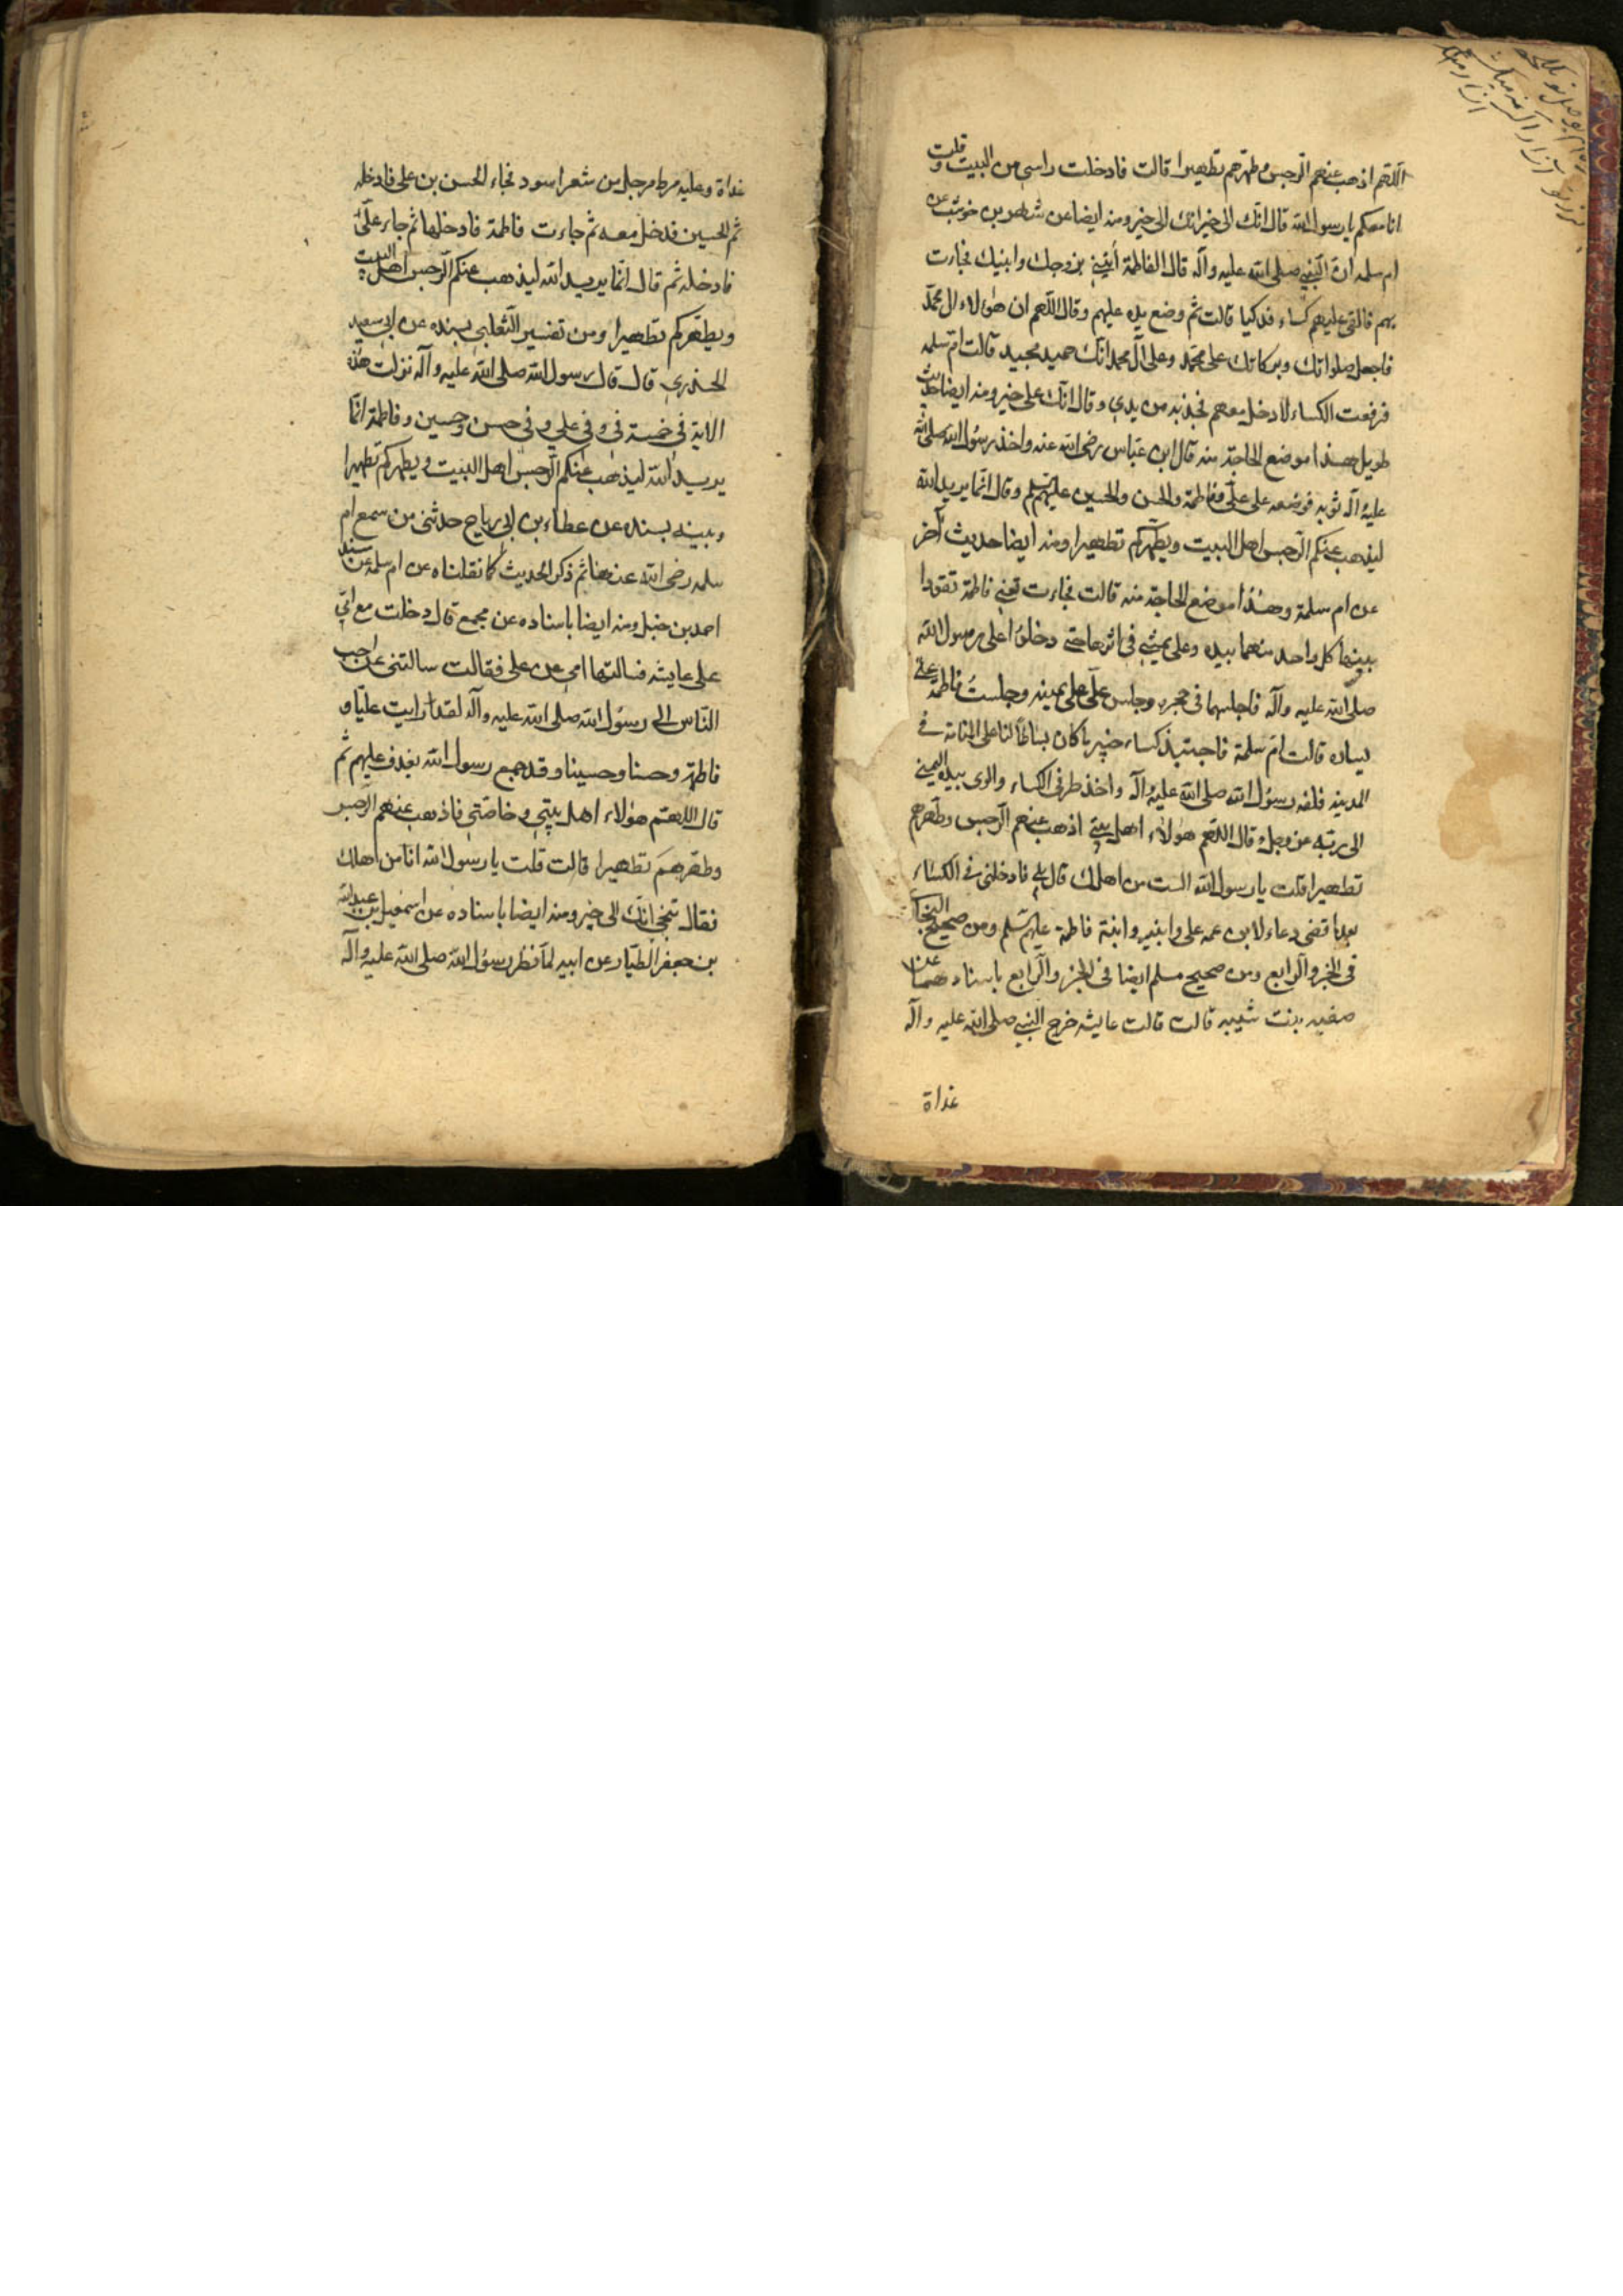 اللهم اذهب عنهم الرجس وطهرهم تطهيرا قالت فادخلت راسي من البيت وقلت
انا معكم يا رسول الله قال انك الى خير انك الى خير ومنه ايضا عن شهر بن حوشب عن
ام سلمه ان النبي صلى الله عليه وآله قال لفاطمة أيتيني بزوجك وابنيك فجاءت
بهم فالقى عليهم كساء فدكيا قالت ثم وضع يده عليهم وقال اللهم ان هؤلاء ال محمد
فاجعل صلواتك وبركاتك على محمد وعلى آل محمد انك حميد مجيد قالت ام سلمه
فرفعت الكساء لادخل معهم فجذبه من يدي وقال انك على خير ومنه ايضا حديث
طويل هذا موضع الحاجة منه قال ابن عباس رضى الله عنه واخذ رسول الله صلى الله
عليه آله ثوبه فوضعه على علي وفاطمة والحسن والحسين عليهم سلم وقال انما يريد الله
ليذهب عنكم الرجس اهل البيت ويطهركم تطهيرا ومنه ايضا حديث آخر
عن ام سلمة وهذا موضع الحاجة منه قالت فجاءت تعني فاطمة تقود
ابنيها كل واحد منهما بيده وعلي يمشي في اثرها حتى دخلوا على رسول الله
صلى الله عليه وآله فاجلسهما في حجره وجلس علي على يمينه وجلست فاطمة على
يساره قالت ام سلمة فاجتبذ كساء خيبريا كان بساطا لنا على المنامة في
المدينة فلفه رسول الله صلى الله عليه آله واخذ طرفي الكساء والوى بيده اليمنى
الى ربه عز وجل وقال اللهم هؤلاء اهل بيتي اذهب عنهم الرجس وطهرهم
تطهيرا قلت يا رسول الله الست من اهلك قال بلى فادخلني في الكساء
بعد ما قضى دعاءه لابن عمه على وابنيه وابنة فاطمة عليهم سلم ومن صحيح البخاري
في الجزو الرابع ومن صحيح مسلم ايضا في الجزو الرابع باسنادهما عن
صفيه بنت شيبه قالت قالت عايشه خرج النبي صلى الله عليه وآله
غداة
غداة وعليه مرط مرجل من شعر اسود فجاء الحسن بن على فادخله
ثم الحسين فدخل معه ثم جاءت فاطمة فادخلها ثم جاء علي
فادخله ثم قال انما يريد الله ليذهب عنكم الرجس اهل البيت
ويطهركم تطهيرا ومن تفسير الثعلبي بسنده عن ابي سعيد
الخدري قال قال رسول الله صلى الله عليه وآله نزلت هذه
الاية في خمسة في وفي علي وفي حسن وحسين وفاطمة انما
يريد الله ليذهب عنكم الرجس اهل البيت ويطهركم تطهيرا
وبينه بسنده عن عطاء بن ابي رباح حدثني من سمع ام
سلمه رضى الله عنها ثم ذكر الحديث كما نقلناه عن ام سلمه عن مسند
احمد بن حنبل ومنه ايضا باسناده عن مجمع قال دخلت مع امي
على عايشه فسالتها امي عن على فقالت سالتني عن احب
الناس الى رسول الله صلى الله عليه وآله لقد رايت عليا و
فاطمة وحسنا وحسينا وقد جمع رسول الله بغدف عليهم ثم
قال اللهم هؤلاء اهل بيتي وخاصتي فاذهب عنهم الرجس
وطهرهم تطهيرا قالت قلت يا رسول الله انا من اهلك
فقال تنحي انك الى خير ومنه ايضا باسناده عن اسمعيل بن عبد الله
بن جعفر الطيار عن ابيه لما نظر رسول الله صلى الله عليه وآله